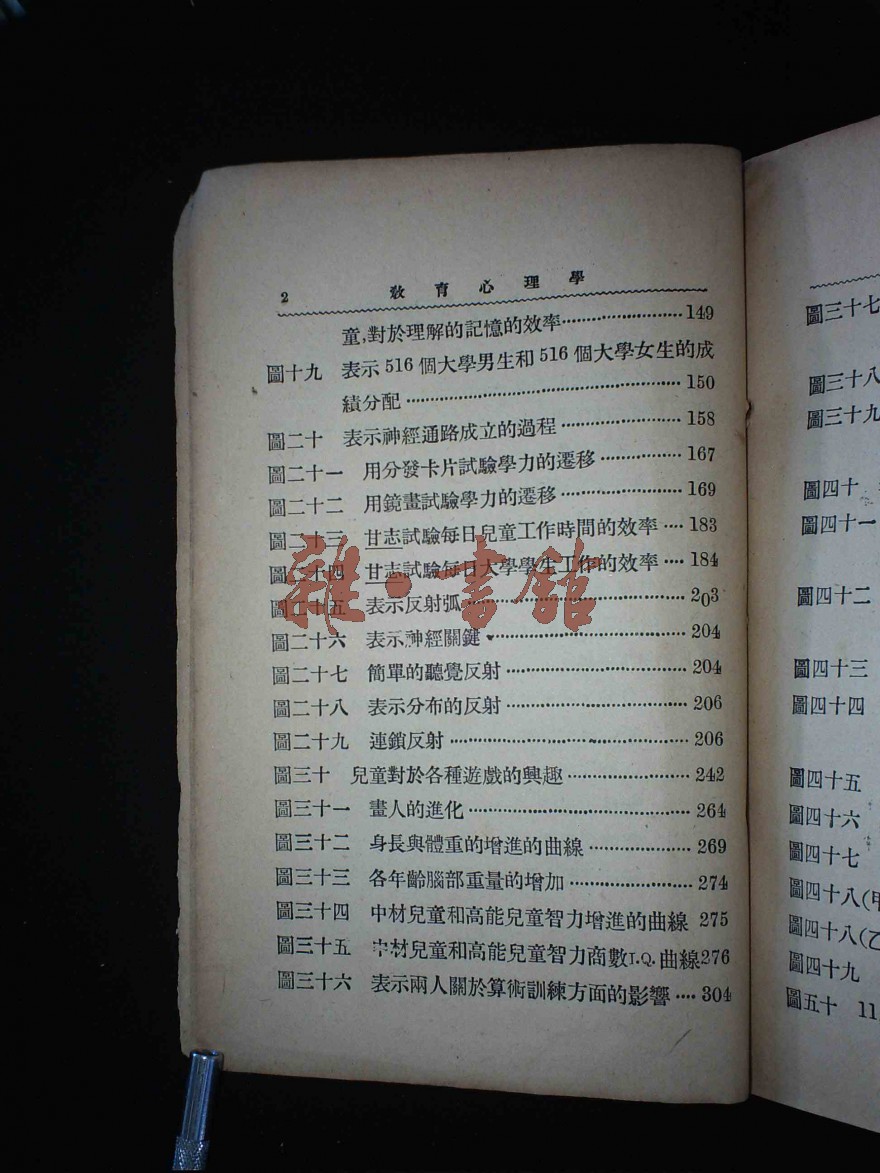 2 教育心理學
童,對於理解的記憶的效率……………………149
圖十九 表示516個大學男生和516個大學女生的成
績分配……………………………………………150
圖二十 表示神經通路成立的過程……………………158
圖二十一 用分發卡片試驗學力的遷移………………167
圖二十二 用鏡畫試驗學力的遷移……………………169
圖二十三 甘志試驗每日兒童工作時間的效率……183
圖二十四 甘志試驗每日大學學生工作的效率……184
圖二十五 表示反射弧…………………………………203
圖二十六 表示神經關鍵………………………………204
圖二十七 簡單的聽覺反射……………………………204
圖二十八 表示分布的反射……………………………206
圖二十九 連鎖反射……………………………………206
圖三十 兒童對於各種遊戲的興趣……………………242
圖三十一 畫人的進化…………………………………264
圖三十二 身長與體重的增進的曲線…………………269
圖三十三 各年齡腦部重量的增加……………………274
圖三十四 中材兒童和高能兒童智力增進的曲線 275
圖三十五 中材兒童和高能兒童智力商數I.Q.曲線276
圖三十六 表示兩人關於算術訓練方面的影響……304
雜·書館
圖三十七
圖三十八
圖三十九
圖四十
圖四十一
圖四十二
圖四十三
圖四十四
圖四十五
圖四十六
圖四十七
圖四十八(甲
圖四十八(乙
圖四十九
圖五十 11